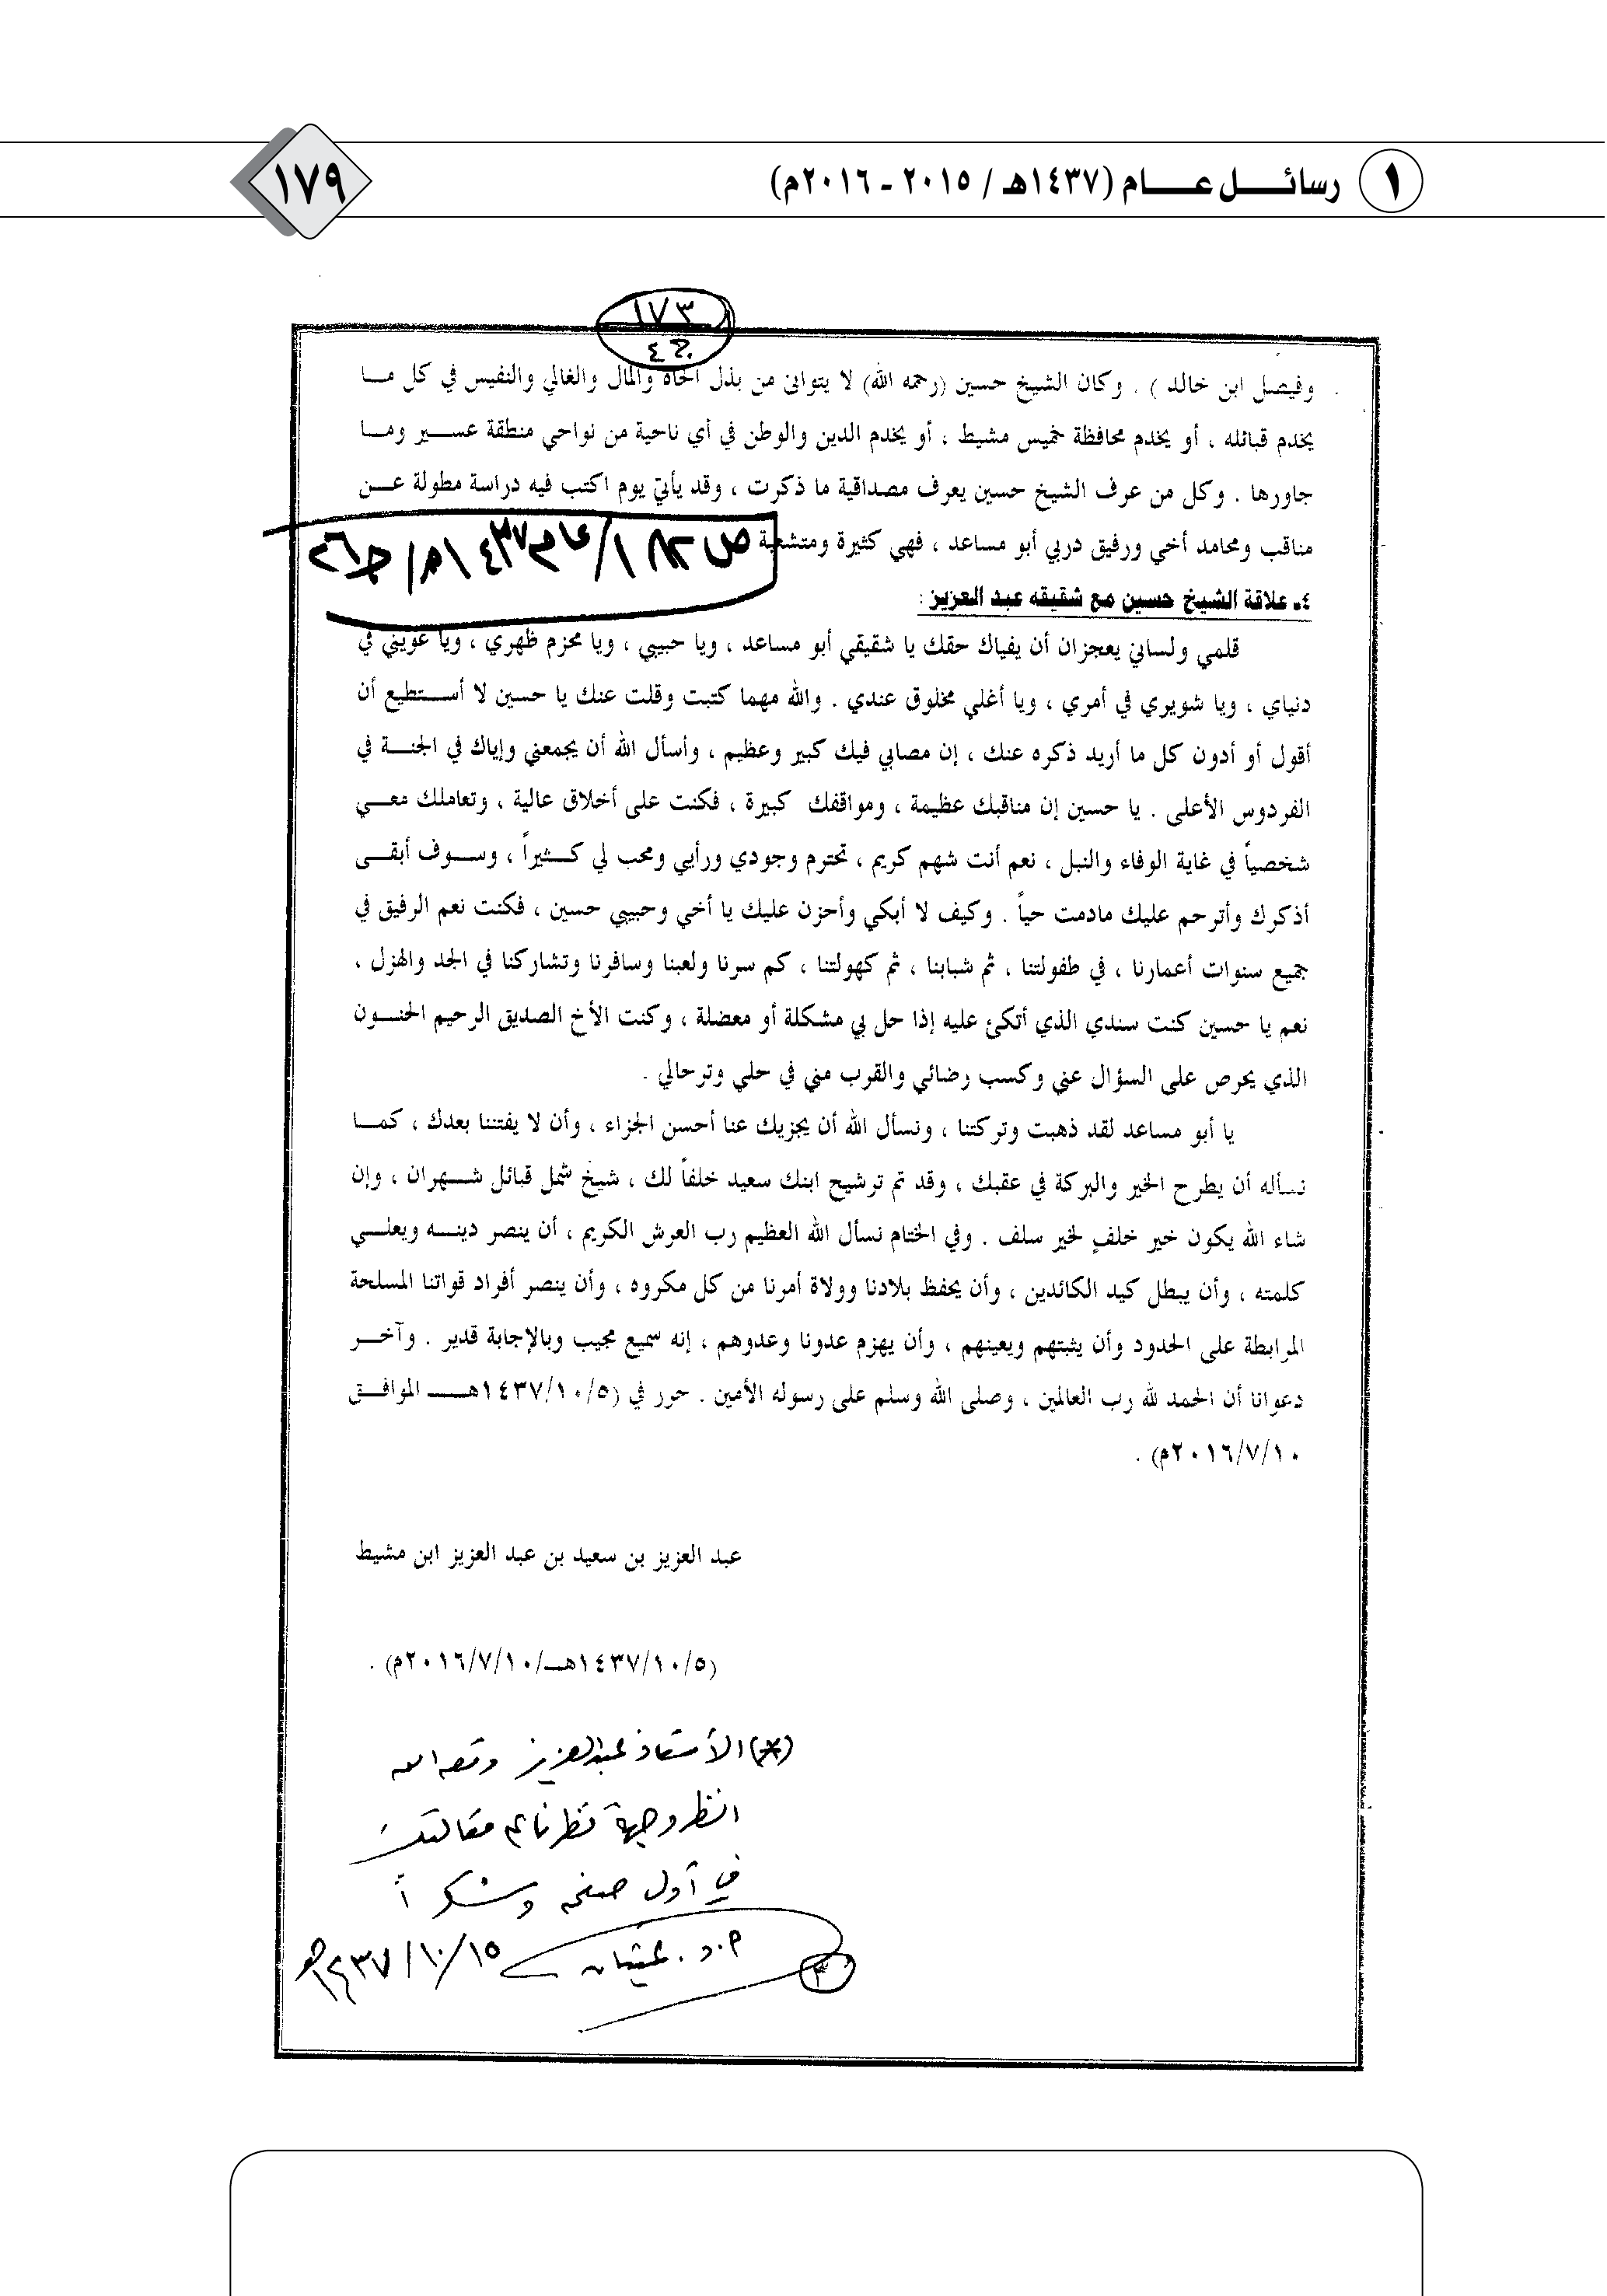 ١ رسائــــل عــــــام (١٤٣٧هـ / ٢٠١٥ ـ ٢٠١٦م)
١٧٩
١٧٣
ج٤
وفيصل ابن خالد ) . وكان الشيخ حسين (رحمه الله) لا يتوانى من بذل الجاه والمال والغالي والنفيس في كل مـــا
يخدم قبائله ، أو يخدم محافظة خميس مشيط ، أو يخدم الدين والوطن في أي ناحية من نواحي منطقة عســـير ومـــا
جاورها . وكل من عرف الشيخ حسين يعرف مصداقية ما ذكرت ، وقد يأتي يوم اكتب فيه دراسة مطولة عـــن
مناقب ومحامد أخي ورفيق دربي أبو مساعد ، فهي كثيرة ومتشعبة
/عام ١٤٣٧هـ/ ج٢٦
٤ـ علاقة الشيخ حسين مع شقيقه عبد العزيز :
قلمي ولساني يعجزان أن يفياك حقك يا شقيقي أبو مساعد ، ويا حبيبي ، ويا محزم ظهري ، ويا عويني في
دنياي ، ويا شويري في أمري ، ويا أغلي مخلوق عندي . والله مهما كتبت وقلت عنك يا حسين لا أســـتطيع أن
أقول أو أدون كل ما أريد ذكره عنك ، إن مصابي فيك كبير وعظيم ، وأسأل الله أن يجمعني وإياك في الجنـــة في
الفردوس الأعلى . يا حسين إن مناقبك عظيمة ، ومواقفك كبيرة ، فكنت على أخلاق عالية ، وتعاملك معـــي
شخصياً في غاية الوفاء والنبل ، نعم أنت شهم كريم ، تحترم وجودي ورأيي ومحب لي كـــثيراً ، وســـوف أبقـــى
أذكرك وأترحم عليك مادمت حياً . وكيف لا أبكي وأحزن عليك يا أخي وحبيبي حسين ، فكنت نعم الرفيق في
جميع سنوات أعمارنا ، في طفولتنا ، ثم شبابنا ، ثم كهولتنا ، كم سرنا ولعبنا وسافرنا وتشاركنا في الجد والهزل ،
نعم يا حسين كنت سندي الذي أتكئ عليه إذا حل بي مشكلة أو معضلة ، وكنت الأخ الصديق الرحيم الحنـــون
الذي يحرص على السؤال عني وكسب رضائي والقرب مني في حلي وترحالي .
يا أبو مساعد لقد ذهبت وتركتنا ، ونسأل الله أن يجزيك عنا أحسن الجزاء ، وأن لا يفتننا بعدك ، كمـــا
نسأله أن يطرح الخير والبركة في عقبك ، وقد تم ترشيح ابنك سعيد خلفاً لك ، شيخ شمل قبائل شـــهران ، وإن
شاء الله يكون خير خلفٍ لخير سلف . وفي الختام نسأل الله العظيم رب العرش الكريم ، أن ينصر دينـــه ويعلـــي
كلمته ، وأن يبطل كيد الكائدين ، وأن يحفظ بلادنا وولاة أمرنا من كل مكروه ، وأن ينصر أفراد قواتنا المسلحة
المرابطة على الحدود وأن يثبتهم ويعينهم ، وأن يهزم عدونا وعدوهم ، إنه سميع مجيب وبالإجابة قدير . وآخـــر
دعوانا أن الحمد لله رب العالمين ، وصلى الله وسلم على رسوله الأمين . حرر في (١٤٣٧/١٠/٥هـــ الموافـــق
٢٠١٦/٧/١٠م) .
عبد العزيز بن سعيد بن عبد العزيز ابن مشيط
(١٤٣٧/١٠/٥هـــ/٢٠١٦/٧/١٠م) .
(*) الأستاذ عبدالعزيز وفقه الله
انظر وجهة نظرنا في مقالتك
في أول صفحة وشكراً
٣
١٤٣٧/١٠/١٥هـ